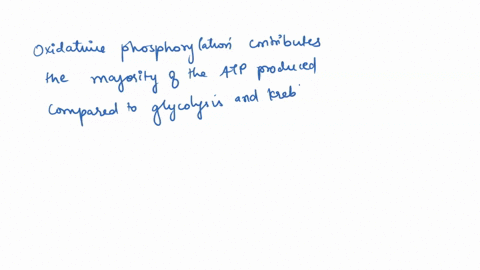 Oxidative phosphorylation contributes
the majority of the ATP produced
compared to glycolysis and kreb'